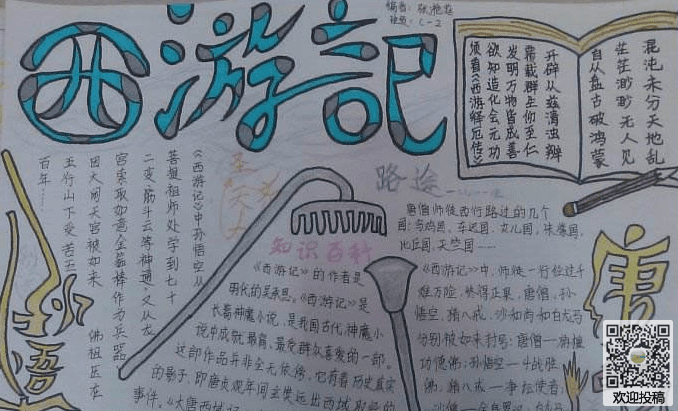 西游记
编者：张
班级：C-2
混沌未分天地乱
茫茫渺渺无人见
自从盘古破鸿蒙
开辟从兹清浊辨
覆载群生仰至仁
发明万物皆成善
欲知造化会元功
须看《西游释厄传》
《西游记》中孙悟空从
菩提祖师处学到七十
二变、筋斗云等神通，又从龙
宫索取如意金箍棒作为兵器
因大闹天宫被如来佛祖压在
五行山下受苦五
百年……
孙悟
路途
唐僧师徒西行路过的几个
国：乌鸡国、车迟国、女儿国、朱紫国、
比丘国、天竺国……
知识百科
《西游记》的作者是
明代的吴承恩。《西游记》是
长篇神魔小说，是我国古代神魔小
说中成就最高，最受群众喜爱的一部。
这部作品并非全无依傍，它有着历史真实
的影子，即唐贞观年间玄奘远出西域取经的
事件。《大唐西域
《西游记》中，师徒一行经过千
难万险，终得正果，唐僧、孙
悟空、猪八戒、沙和尚和白龙马
分别被如来封为：唐僧—旃檀
功德佛；孙悟空—斗战胜
佛；猪八戒—净坛使者；
唐
欢迎投稿